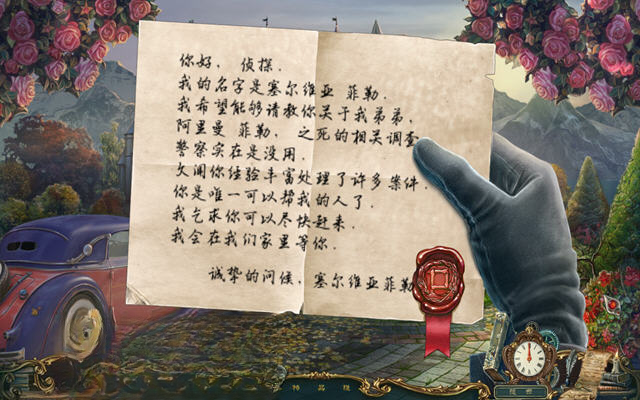 你好，侦探．
我的名字是塞尔维亚 菲勒．
我希望能够请教你关于我弟弟，
阿里曼 菲勒， 之死的相关调查
警察实在是没用．
久闻你经验丰富处理了许多案件．
你是唯一可以帮我的人了．
我乞求你可以尽快赶来．
我会在我们家里等你．
诚挚的问候，塞尔维亚菲勒